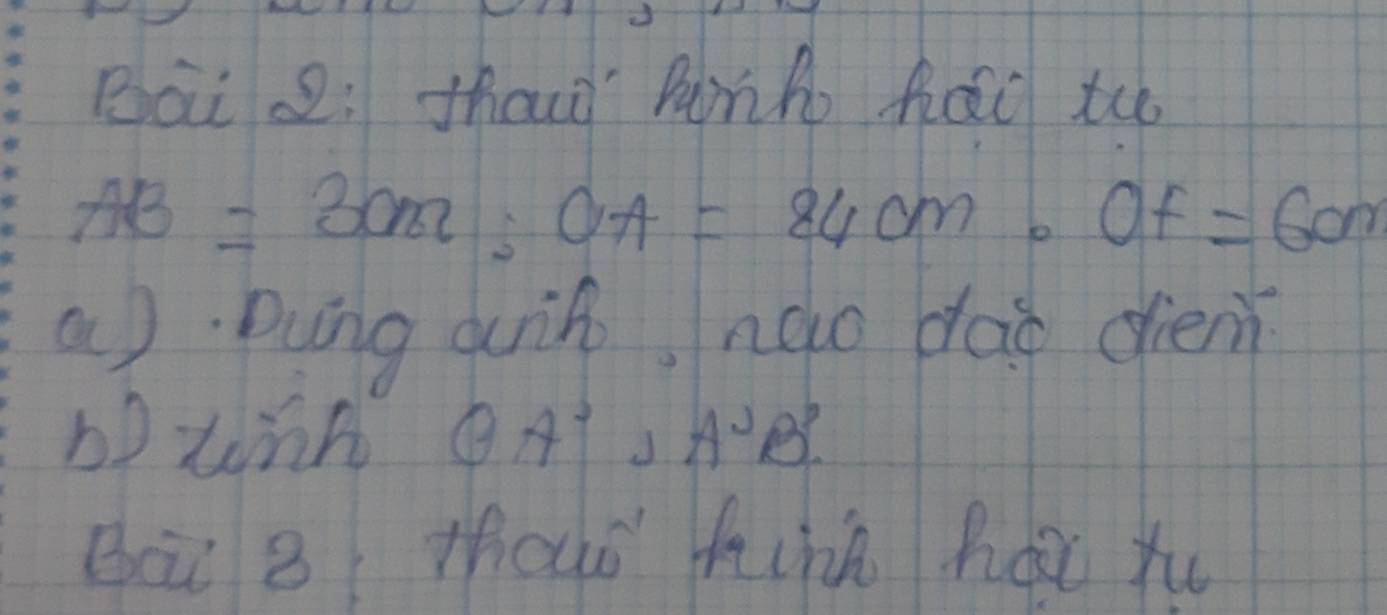 Bài 2: thấu kính hội tụ
AB = 3cm; OA = 24cm. OF = 6cm
a). Dựng ảnh, nào đặc điểm
b) tính OA', A'B'.
Bài 3: thấu kính hội tụ